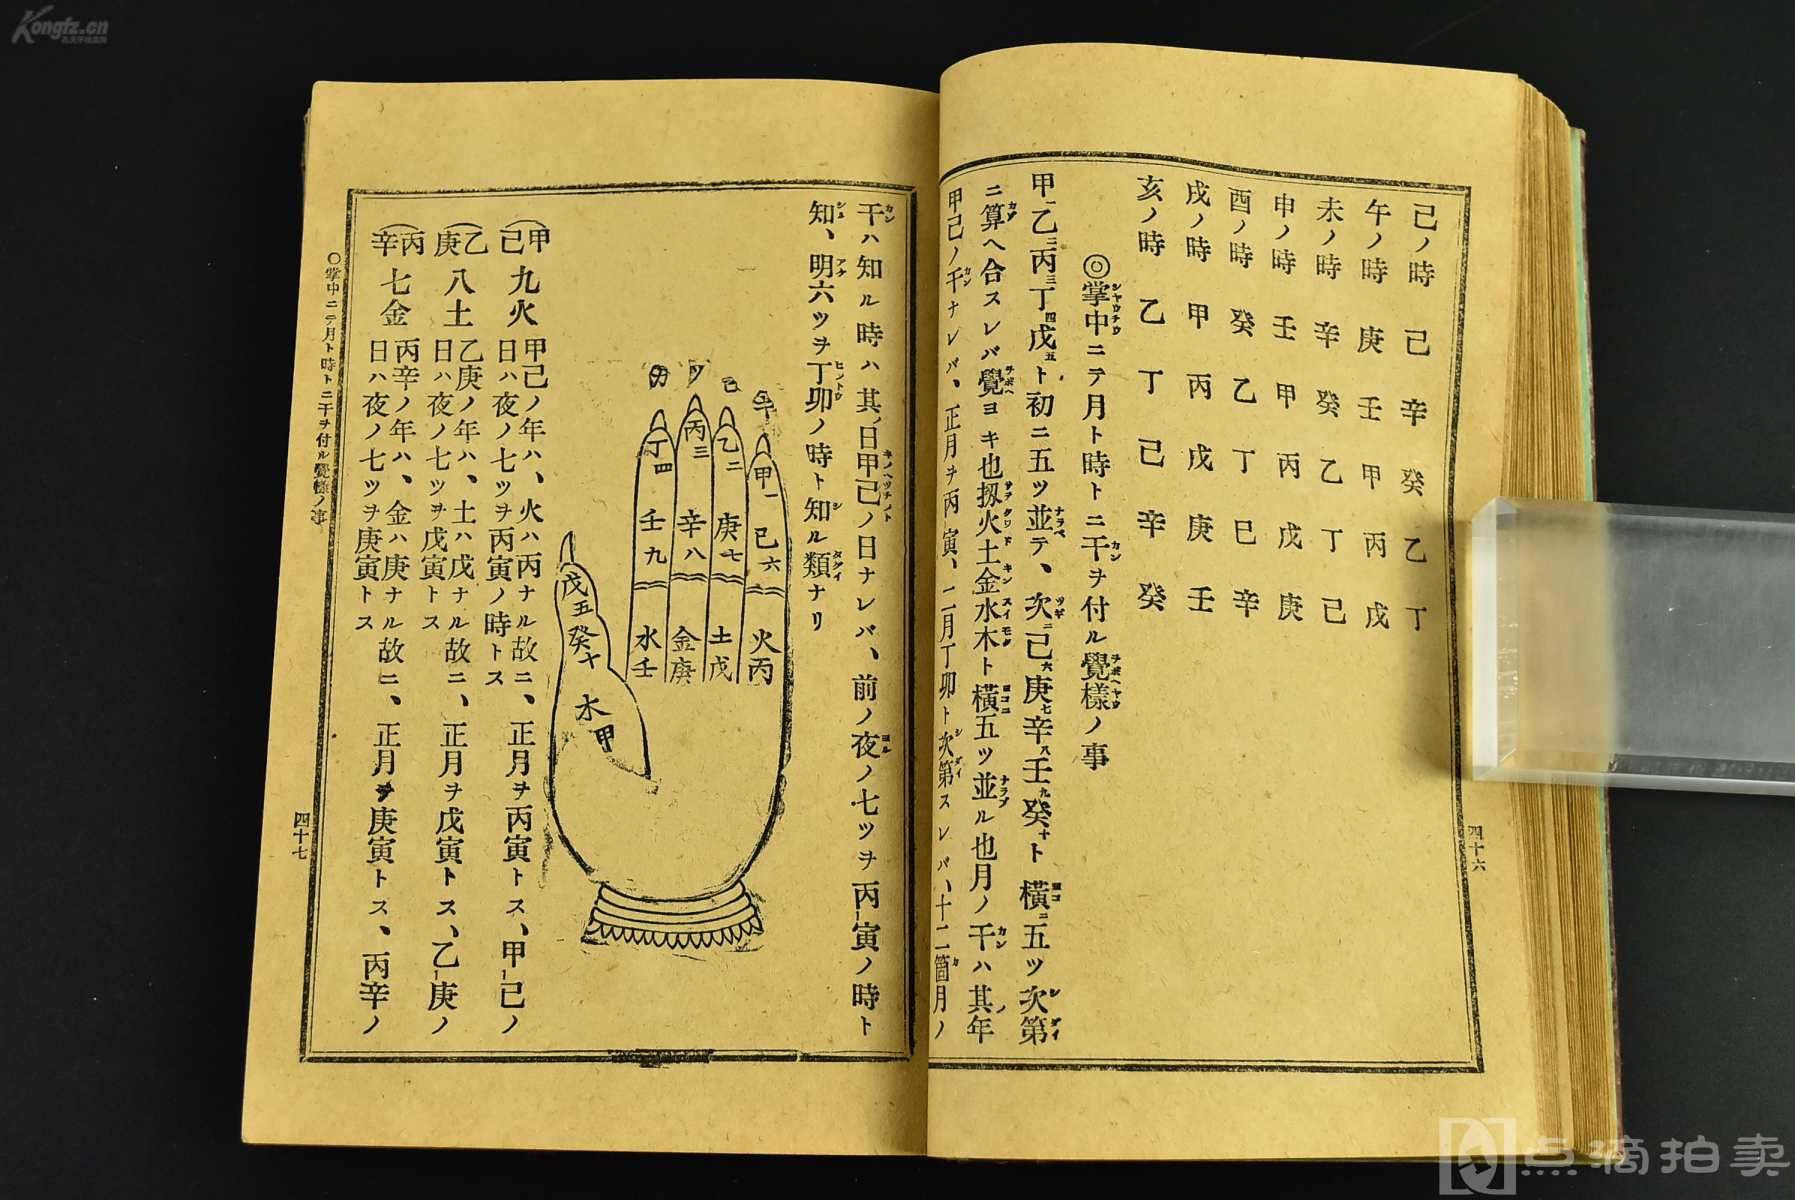 己ノ時 己 辛 癸 乙 丁
午ノ時 庚 壬 甲 丙 戊
未ノ時 辛 癸 乙 丁 己
申ノ時 壬 甲 丙 戊 庚
酉ノ時 癸 乙 丁 巳 辛
戌ノ時 甲 丙 戊 庚 壬
亥ノ時 乙 丁 己 辛 癸
◎掌中ニテ月ト時トニ干ヲ付ル覺樣ノ事
甲一乙二丙三丁四戊五ト初ニ五ツ並テ、次ニ己六庚七辛八壬九癸十ト橫ニ五ツ次第
ニ算ヘ合スレバ覺ヨキ也扨火土金水木ト橫五ツ並ル也月ノ干ハ其年
甲己ノ干ナレバ、正月ヲ丙寅、二月丁卯ト次第スレバ、十二箇月ノ
四十六
干ハ知ル時ハ其ノ日甲己ノ日ナレバ、前ノ夜ノ七ツヲ丙寅ノ時ト
知、明六ツヲ丁卯ノ時ト知ル類ナリ
甲一 己六 火丙
乙二 庚七 土戊
丙三 辛八 金庚
丁四 壬九 水壬
戊五 癸十 木甲
甲己 九火 甲己ノ年ハ、火ハ丙ナル故ニ、正月ヲ丙寅トス、甲己ノ
日ハ夜ノ七ツヲ丙寅ノ時トス
乙庚 八土 乙庚ノ年ハ、土ハ戊ナル故ニ、正月ヲ戊寅トス、乙庚ノ
日ハ夜ノ七ツヲ戊寅トス
丙辛 七金 丙辛ノ年ハ、金ハ庚ナル故ニ、正月ヲ庚寅トス、丙辛ノ
日ハ夜ノ七ツヲ庚寅トス
○掌中ニテ月ト時トニ干ヲ付ル覺樣ノ事
四十七
Kongfz.cn
点滴拍卖